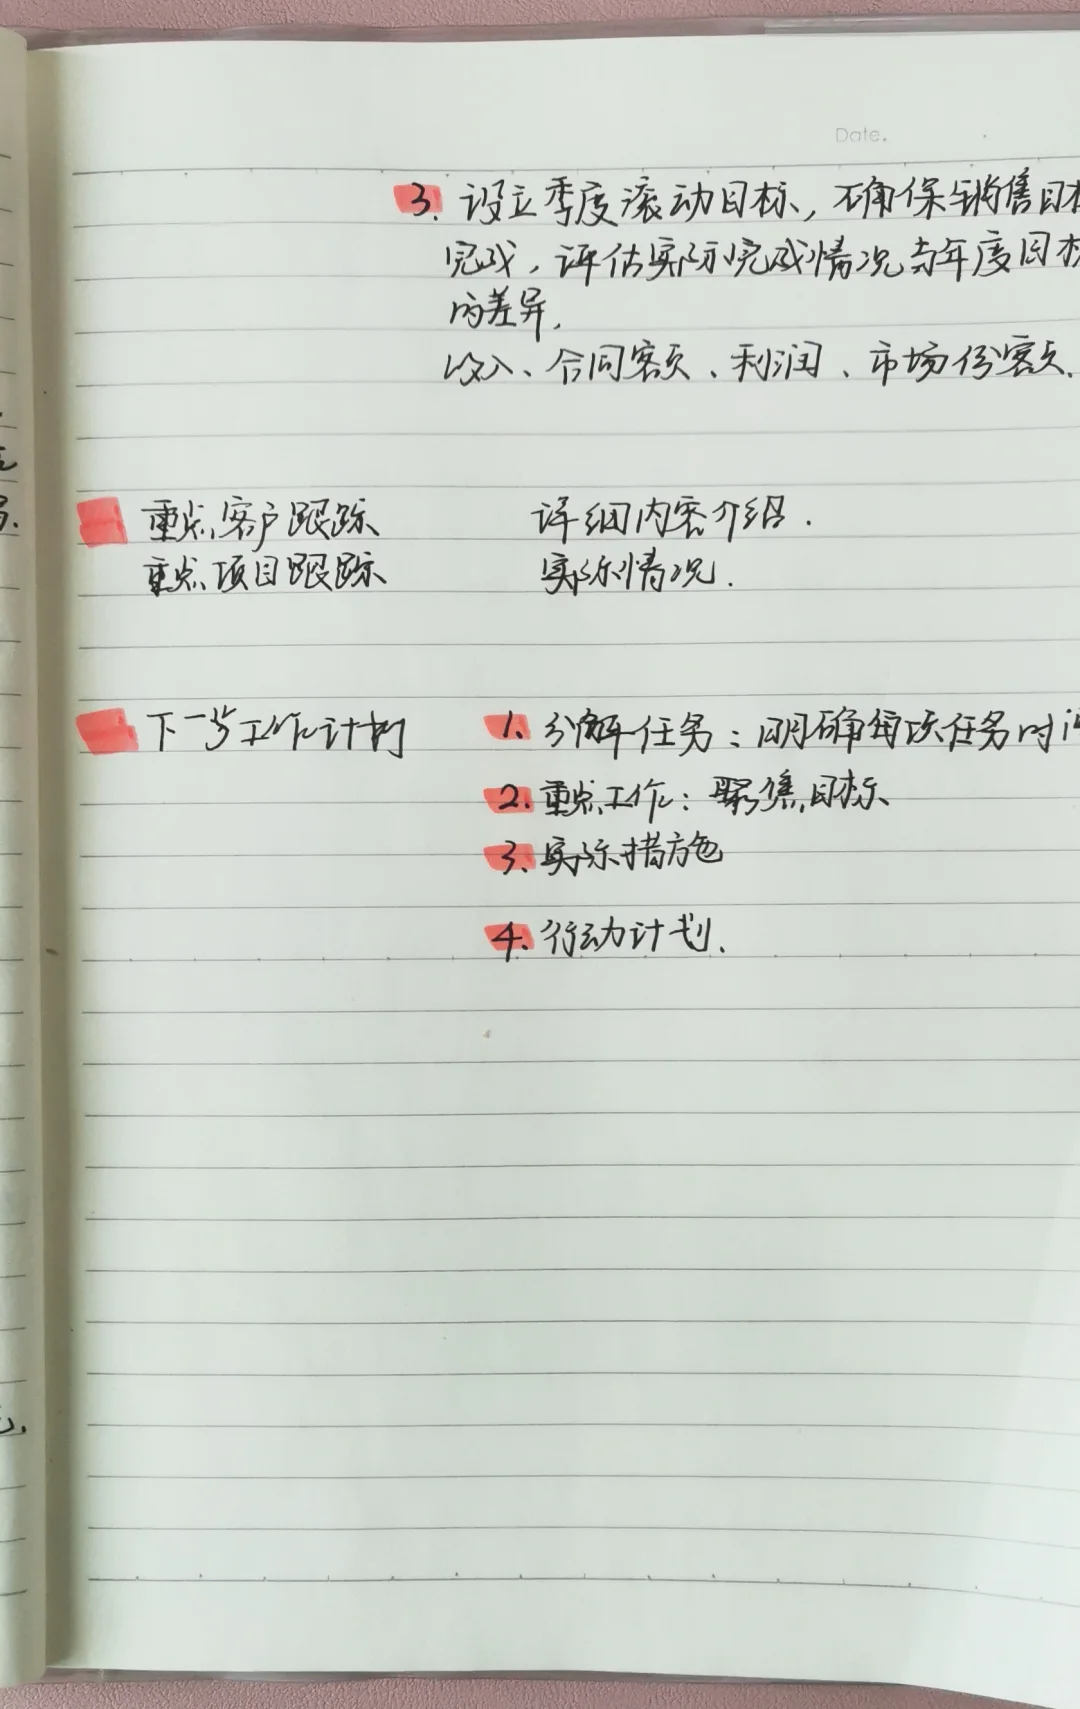 Date.
3. 设立季度滚动目标,确保销售目标
完成,评估实际完成情况与年度目标
的差异.
收入、合同额、利润、市场份额.
重点客户跟踪 详细内容介绍.
重点项目跟踪 实际情况.
下一步工作计划 1. 分解任务:明确每项任务时
2. 重点工作:聚焦目标
3. 实际措施
4. 行动计划.